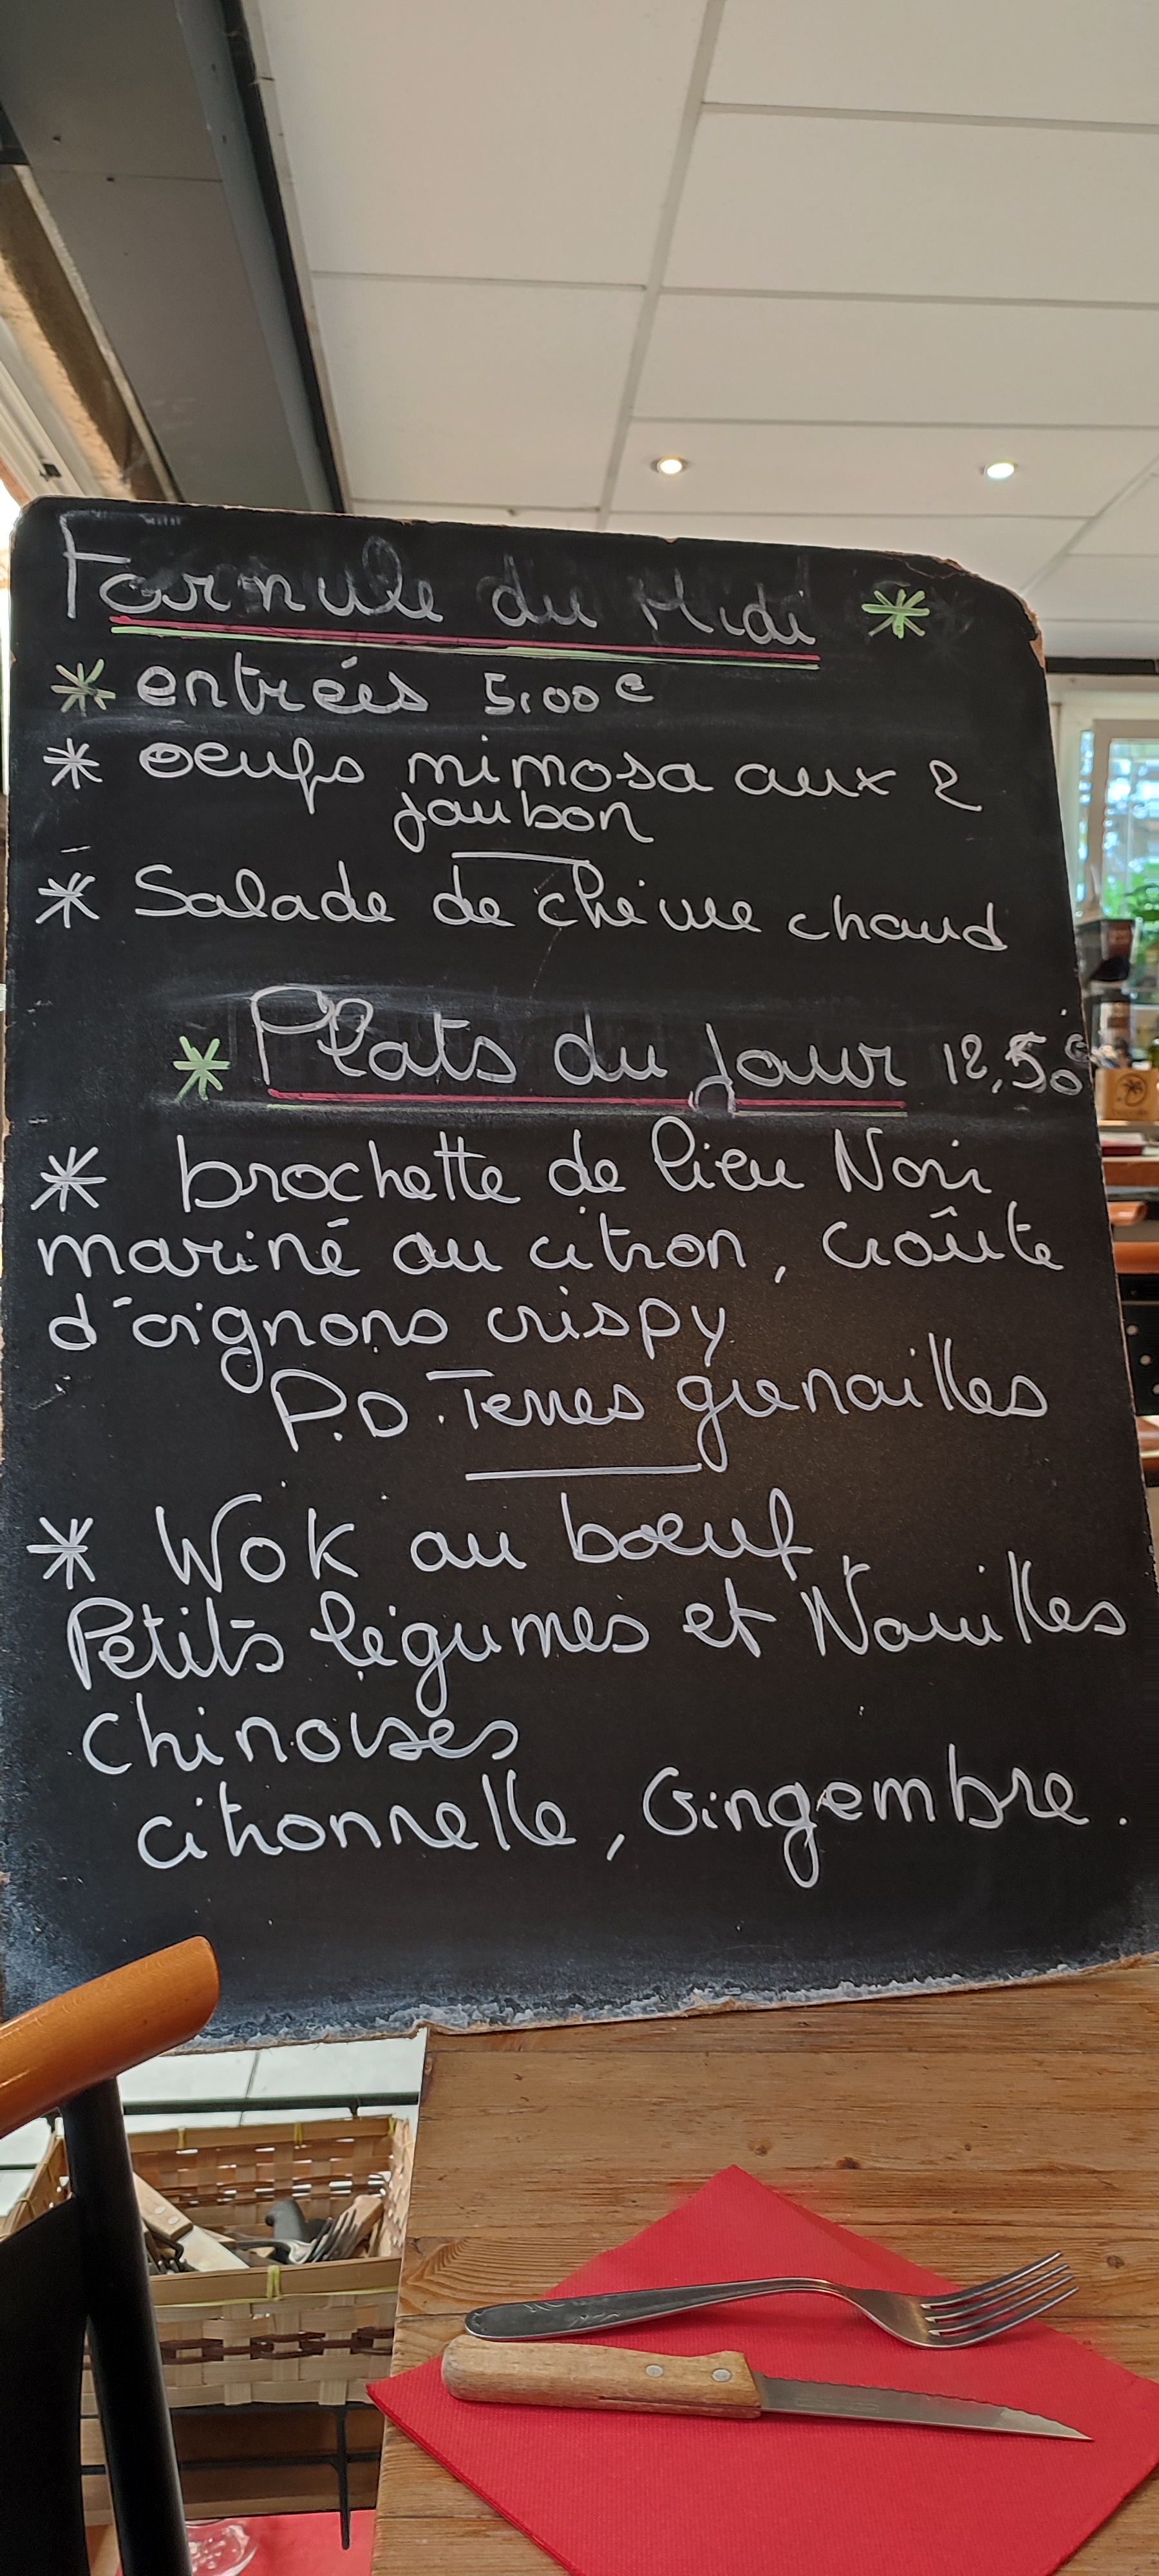 Formule du Midi *
* entrées 5,00€
* oeufs mimosa aux 2
jambon
* Salade de chèvre chaud
* Plats du jour 12,50€
* brochette de lieu Noir
mariné au citron, croûte
d'oignons crispy
P.D.Terres grenailles
* Wok au bœuf
Petits légumes et Nouilles
chinoises
citronnelle, Gingembre.